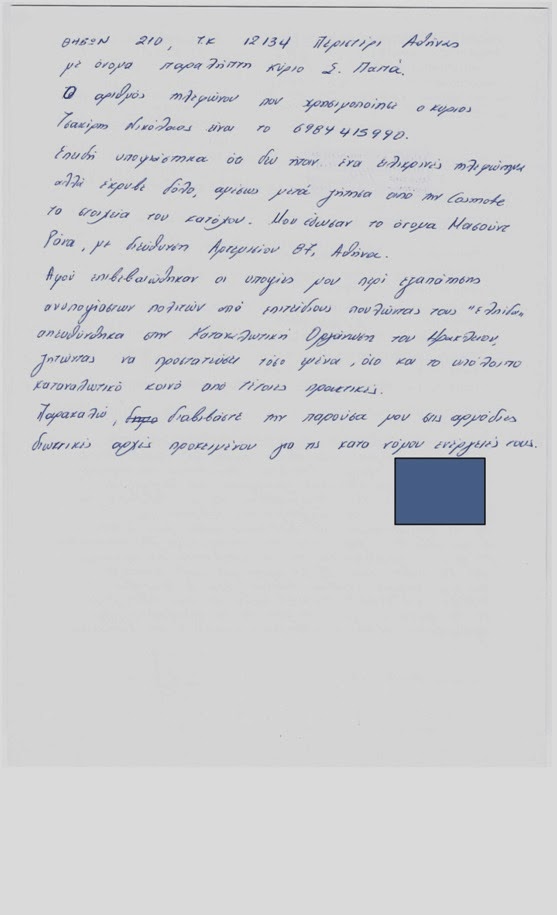 ΘΗΒΩΝ 210, Τ.Κ 12134 Περιστέρι Αθήνας
με όνομα παραλήπτη κύριο Σ. Παπά.
Ο αριθμός τηλεφώνου που χρησιμοποίησε ο κύριος
Τσακίρης Νικόλαος είναι το 6984415990.
Επειδή υποψιάστηκα ότι δεν ήταν ένα ειλικρινές τηλεφώνημα
αλλά έκρυβε δόλο, αμέσως μετά ζήτησα από την Cosmote
τα στοιχεία του κατόχου. Μου έδωσαν το όνομα Μασούντ
Ράνα, με διεύθυνση Αρτεμισίου 87, Αθήνα.
Αφού επιβεβαιώθηκαν οι υποψίες μου περί εξαπάτησης
ανυποψίαστων πολιτών από επιτείδιους πουλώντας τους "ελπίδα"
απευθύνθηκα στην Καταναλωτική Οργάνωση του Ηρακλείου,
ζητώντας να προστατεύσει τόσο εμένα, όσο και το υπόλοιπο
καταναλωτικό κοινό από τέτοιες πρακτικές.
Παρακαλώ, διαβιβάστε την παρούσα μου στις αρμόδιες
διωκτικές αρχές προκειμένου για τις κατά νόμον ενέργειές τους.